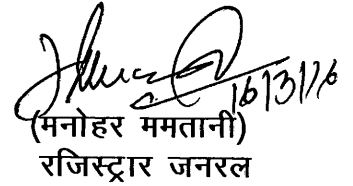 16/3/16
(मनोहर ममतानी)
रजिस्ट्रार जनरल